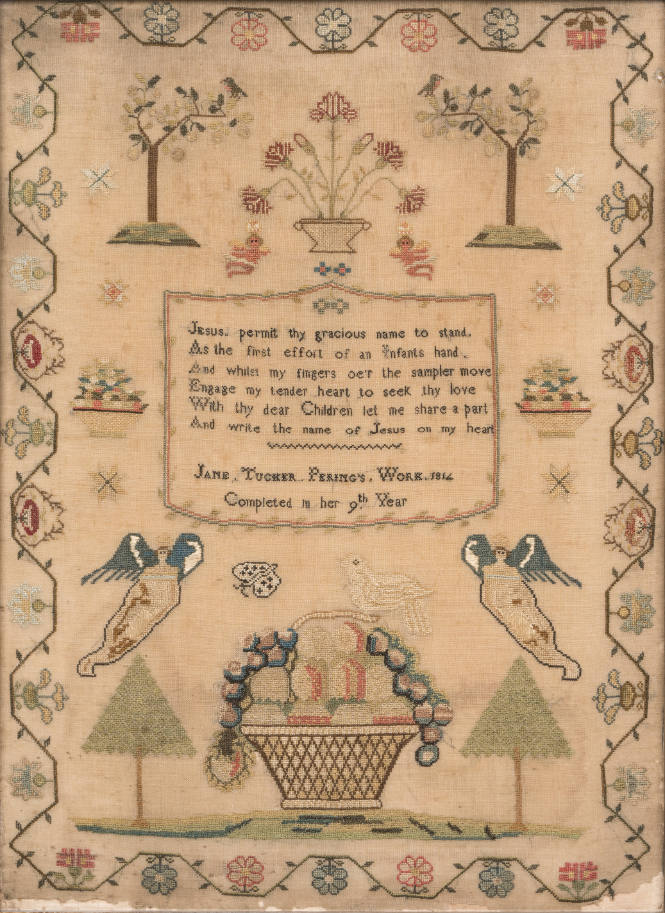 Jesus. permit thy gracious name to stand.
As the first effort of an Infants hand.
And whilst my fingers oe'r the sampler move
Engage my tender heart to seek thy love
With thy dear Children let me share a part
And write the name of Jesus on my heart
Jane. Tucker. Pering's. Work. 1814
Completed in her 9th Year